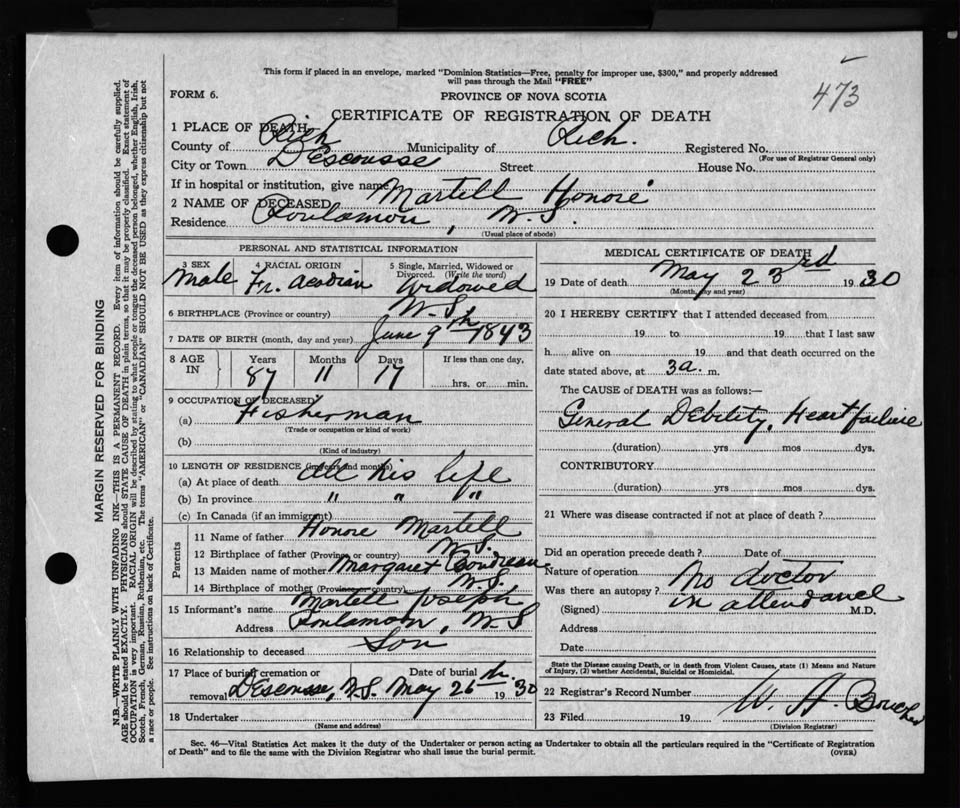 This form if placed in an envelope, marked "Dominion Statistics—Free, penalty for improper use, $300," and properly addressed
will pass through the Mail "FREE"
473
FORM 6.
PROVINCE OF NOVA SCOTIA
CERTIFICATE OF REGISTRATION OF DEATH
1 PLACE OF DEATH
County of Rich Municipality of Rich. Registered No.
(For use of Registrar General only)
City or Town D'escousse Street House No.
If in hospital or institution, give name
2 NAME OF DECEASED Martell Honoré
Residence Poulamon, N.S.
(Usual place of abode)
PERSONAL AND STATISTICAL INFORMATION
3 SEX 4 RACIAL ORIGIN 5 Single, Married, Widowed or
Divorced. (Write the word)
Male Fr. Acadian Widowed
6 BIRTHPLACE (Province or country) N.S.
7 DATE OF BIRTH (month, day and year) June 9th 1843
8 AGE IN Years Months Days If less than one day,
87 11 17 hrs. or min.
9 OCCUPATION OF DECEASED
(a) Fisherman
(Trade or occupation or kind of work)
(b)
(Kind of industry)
10 LENGTH OF RESIDENCE (in years and months)
(a) At place of death All his life
(b) In province " " "
(c) In Canada (if an immigrant)
Parents
11 Name of father Honore Martell
12 Birthplace of father (Province or country) N.S.
13 Maiden name of mother Margaret Boudreau
14 Birthplace of mother (Province or country) N.S.
15 Informant's name Martell Joseph
Address Poulamon, N.S
16 Relationship to deceased Son
17 Place of burial, cremation or Date of burial
removal D'escousse, N.S. May 26th. 1930
18 Undertaker
(Name and address)
MEDICAL CERTIFICATE OF DEATH
19 Date of death May 23rd 1930
(Month, day and year)
20 I HEREBY CERTIFY that I attended deceased from
19 to 19 that I last saw
h alive on 19 and that death occurred on the
date stated above, at 3a. m.
The CAUSE of DEATH was as follows:—
General Debility, Heart failure
(duration) yrs mos dys.
CONTRIBUTORY
(duration) yrs mos dys.
21 Where was disease contracted if not at place of death?
Did an operation precede death? Date of
Nature of operation
Was there an autopsy? No doctor
(Signed) in attendance M.D.
Address
Date
State the Disease causing Death, or in death from Violent Causes, state (1) Means and Nature
of Injury, (2) whether Accidental, Suicidal or Homicidal.
22 Registrar's Record Number
23 Filed 19 W. H.
(Division Registrar)
Sec. 46—Vital Statistics Act makes it the duty of the Undertaker or person acting as Undertaker to obtain all the particulars required in the "Certificate of Registration
of Death" and to file the same with the Division Registrar who shall issue the burial permit. (OVER)
MARGIN RESERVED FOR BINDING
N.B.—WRITE PLAINLY WITH UNFADING INK—THIS IS A PERMANENT RECORD. Every item of information should be carefully supplied.
AGE should be stated EXACTLY. PHYSICIANS should STATE CAUSE OF DEATH in plain terms, so that it may be properly classified. Exact statement of
OCCUPATION is very important. RACIAL ORIGIN will be described by stating to what people or tongue the deceased person belonged, whether English, Irish,
Scotch, French, German, Russian, Ruthenian, etc. The terms "AMERICAN" or "CANADIAN" SHOULD NOT BE USED as they express citizenship but not
a race or people. See instructions on back of Certificate.